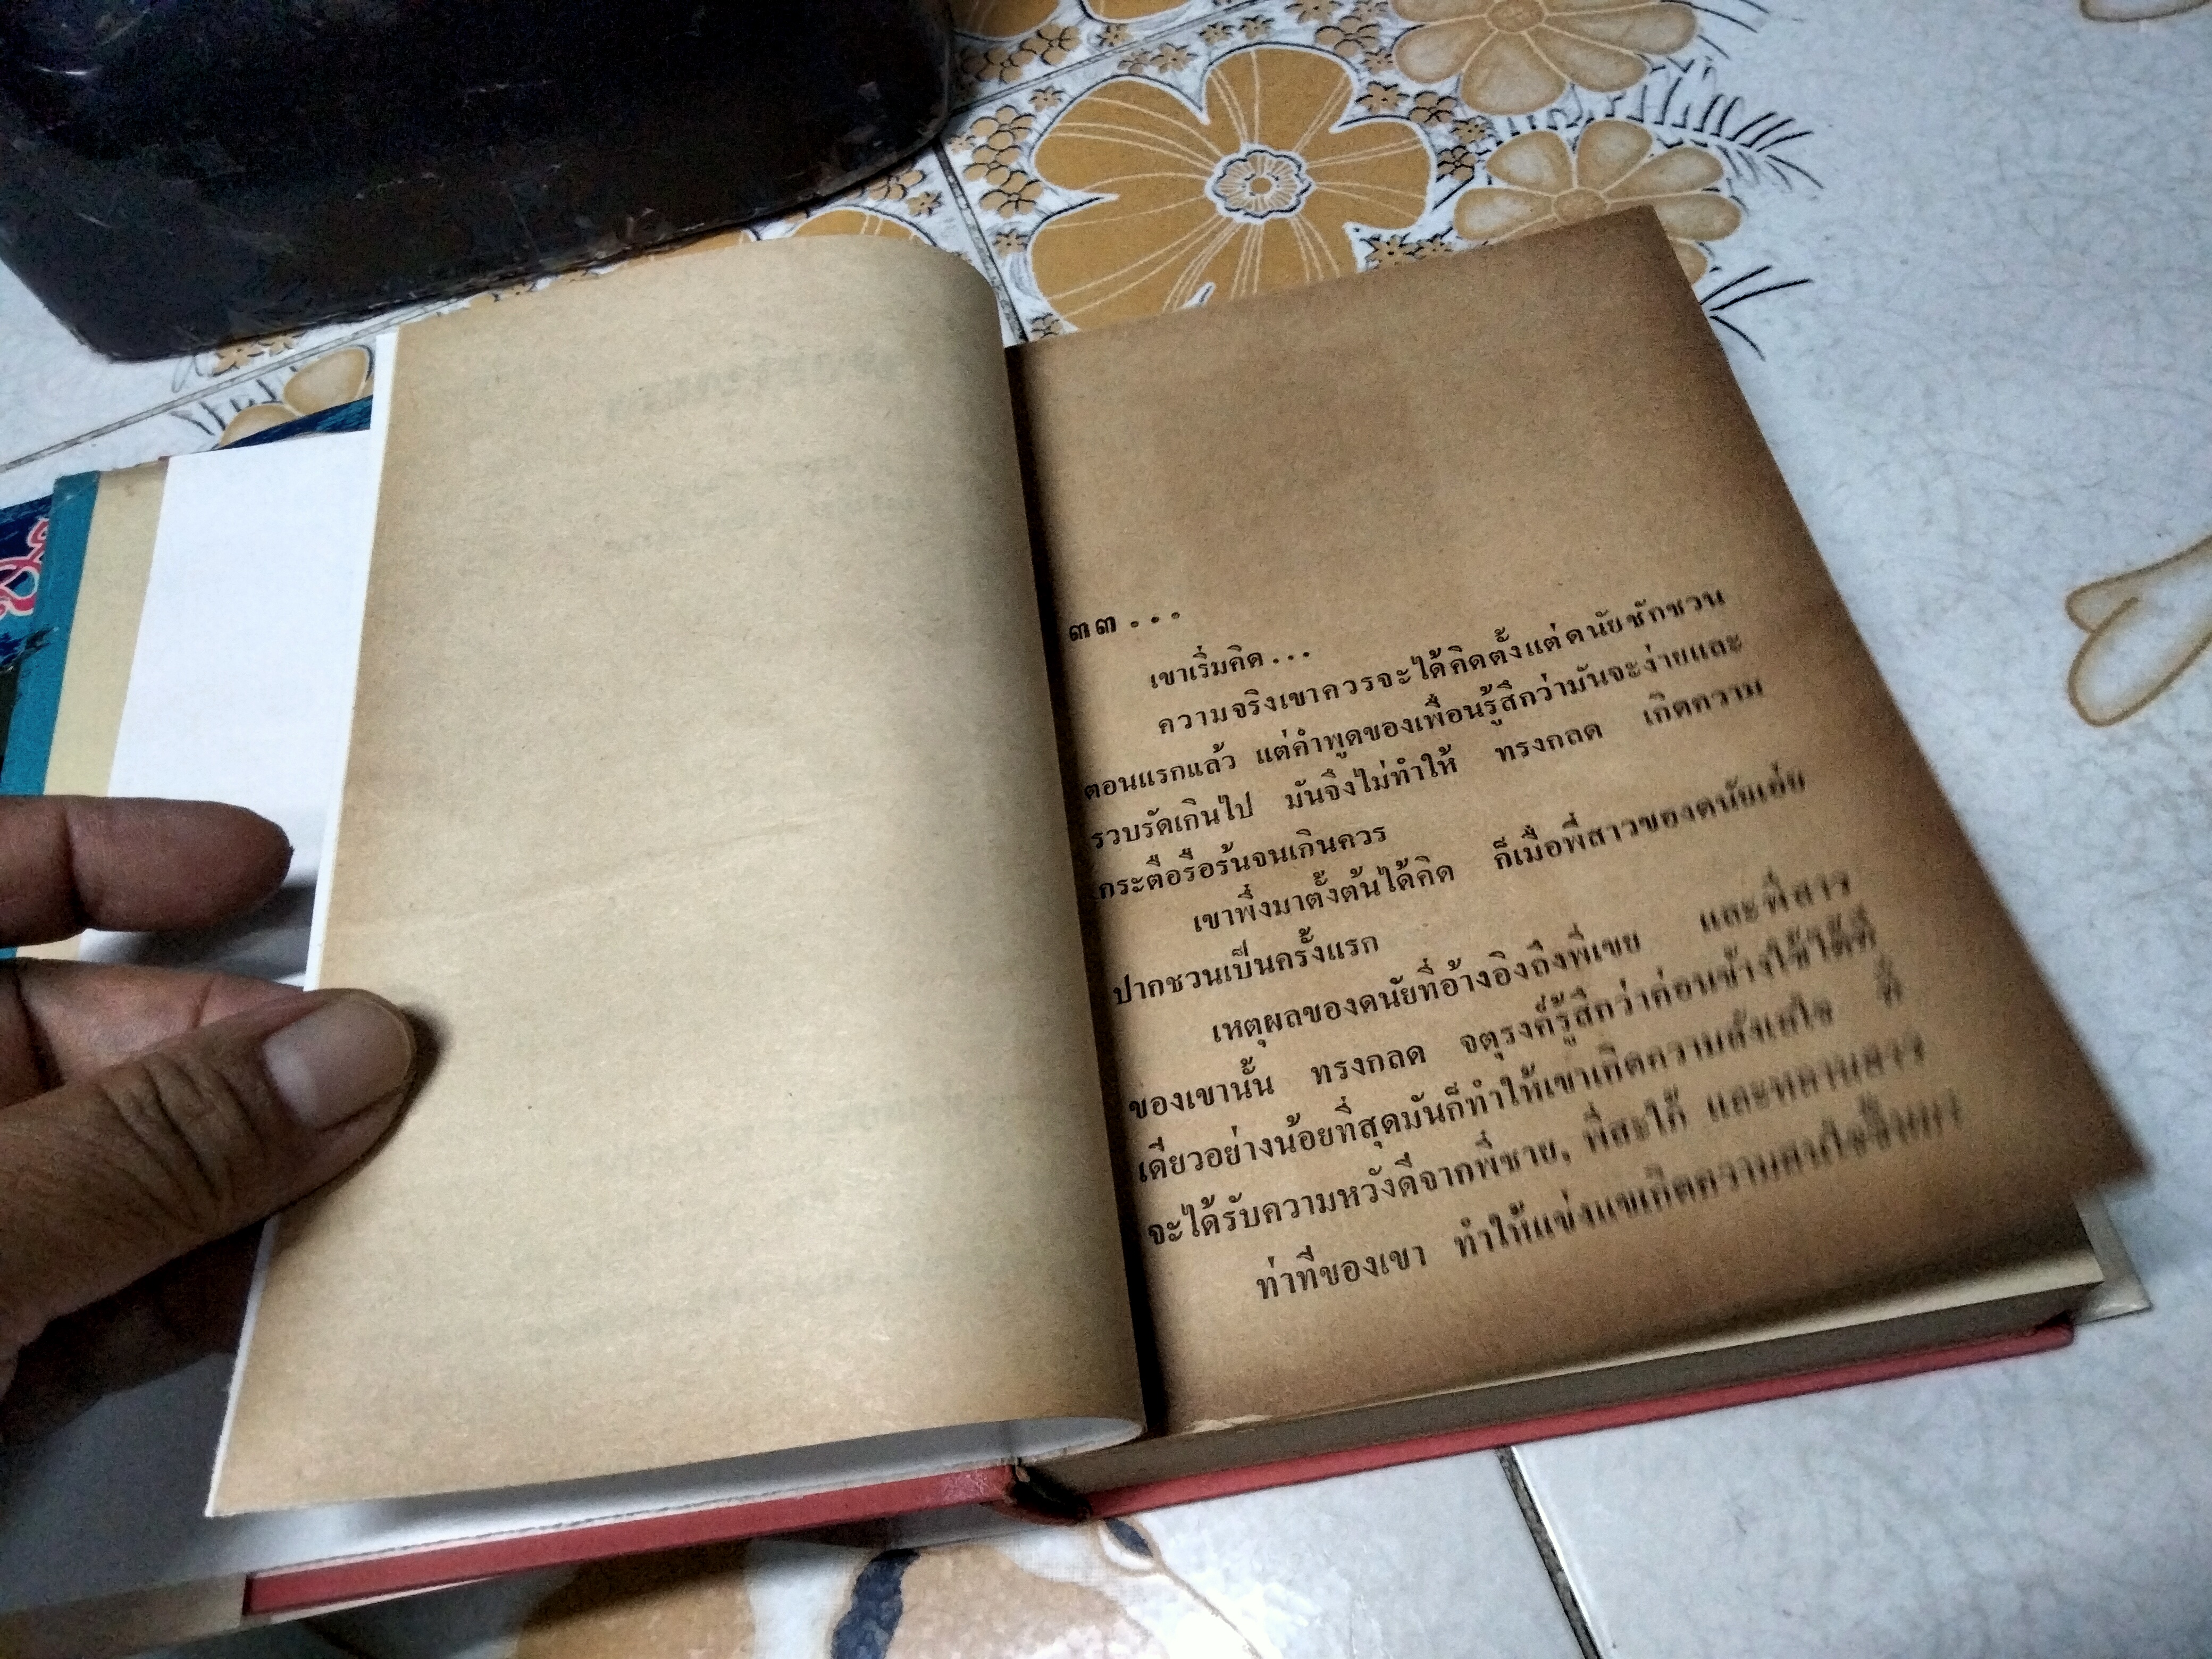 ๓๓...
เขาเริ่มคิด...
ความจริงเขาควรจะได้คิดตั้งแต่ดนัยชักชวน
ตอนแรกแล้ว แต่คำพูดของเพื่อนรู้สึกว่ามันจะง่ายและ
รวบรัดเกินไป มันจึงไม่ทำให้ ทรงกลด เกิดความ
กระตือรือร้นจนเกินควร
เขาพึ่งมาตั้งต้นได้คิด ก็เมื่อพี่สาวของดนัยเอ่ย
ปากชวนเป็นครั้งแรก
เหตุผลของดนัยที่อ้างอิงถึงพี่เขย และพี่สาว
ของเขานั้น ทรงกลด จตุรงค์รู้สึกว่าค่อนข้างใช้ได้ที
เดียวอย่างน้อยที่สุดมันก็ทำให้เขาเกิดความลังเลใจ ที่
จะได้รับความหวังดีจากพี่ชาย, พี่สะใภ้ และหลานสาว
ท่าทีของเขา ทำให้แข่งแขเกิดความสนใจขึ้นมา